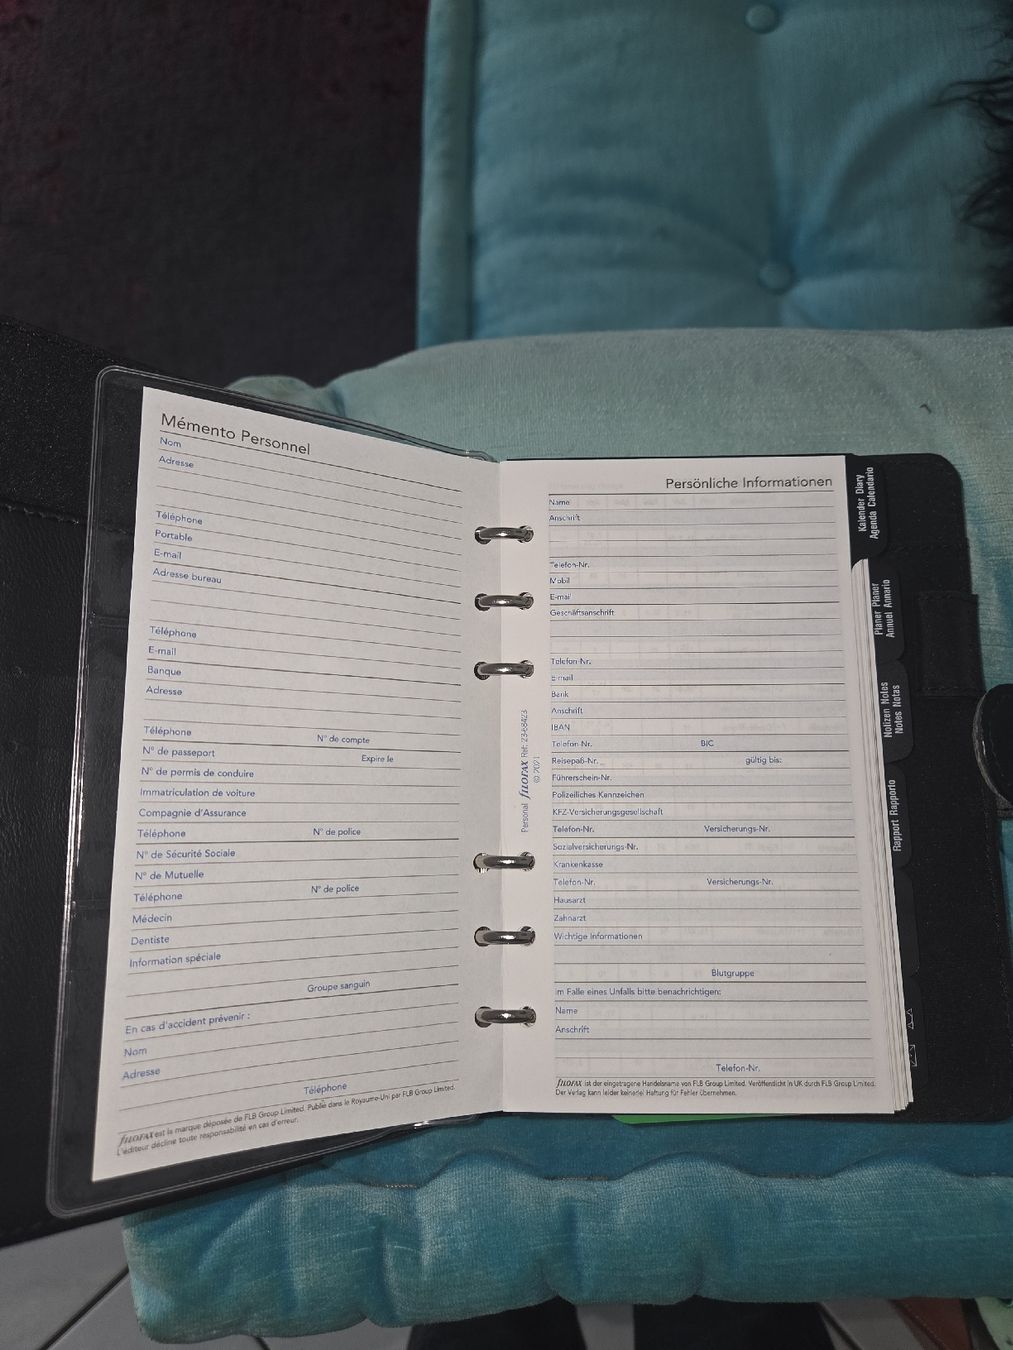 Mémento Personnel
Nom
Adresse
Téléphone
Portable
E-mail
Adresse bureau
Téléphone
E-mail
Banque
Adresse
Téléphone N° de compte
N° de passeport Expire le
N° de permis de conduire
Immatriculation de voiture
Compagnie d'Assurance
Téléphone N° de police
N° de Sécurité Sociale
N° de Mutuelle
Téléphone N° de police
Médecin
Dentiste
Information spéciale
Groupe sanguin
En cas d'accident prévenir :
Nom
Adresse
Téléphone
filofax est la marque déposée de FLB Group Limited. Publié dans le Royaume-Uni par FLB Group Limited.
L'éditeur décline toute responsabilité en cas d'erreur.
Personal filofax Réf: 23-68423
© 2021
Persönliche Informationen
Name
Anschrift
Telefon-Nr.
Mobil
E-mail
Geschäftsanschrift
Telefon-Nr.
E-mail
Bank
Anschrift
IBAN
Telefon-Nr. BIC
Reisepaß-Nr. gültig bis:
Führerschein-Nr.
Polizeiliches Kennzeichen
KFZ-Versicherungsgesellschaft
Telefon-Nr. Versicherungs-Nr.
Sozialversicherungs-Nr.
Krankenkasse
Telefon-Nr. Versicherungs-Nr.
Hausarzt
Zahnarzt
Wichtige Informationen
Blutgruppe
Im Falle eines Unfalls bitte benachrichtigen:
Name
Anschrift
Telefon-Nr.
filofax ist der eingetragene Handelsname von FLB Group Limited. Veröffentlicht in UK durch FLB Group Limited.
Der Verlag kann leider keinerlei Haftung für Fehler übernehmen.
Kalender Diary
Agenda Calendario
Planer Planer
Annuel Annario
Notizen Notes
Notes Notas
Rapport Rapporto